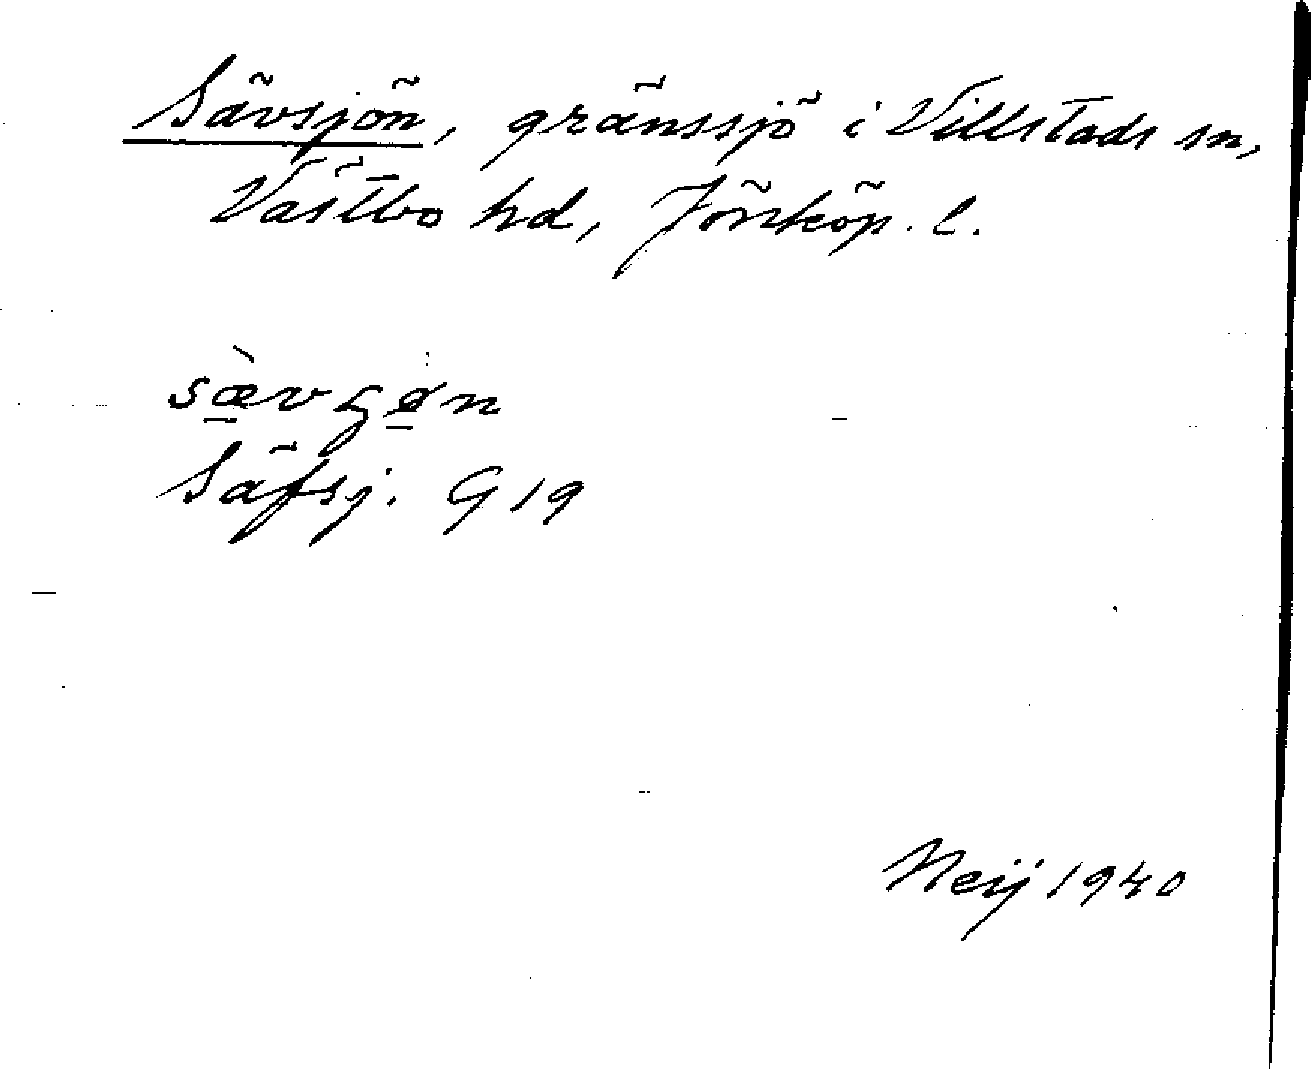 Sävsjön, gränssjö i Villstads sn,
Västbo hd, Jönköp. l.
Säfsj. G 19
Neij 1940